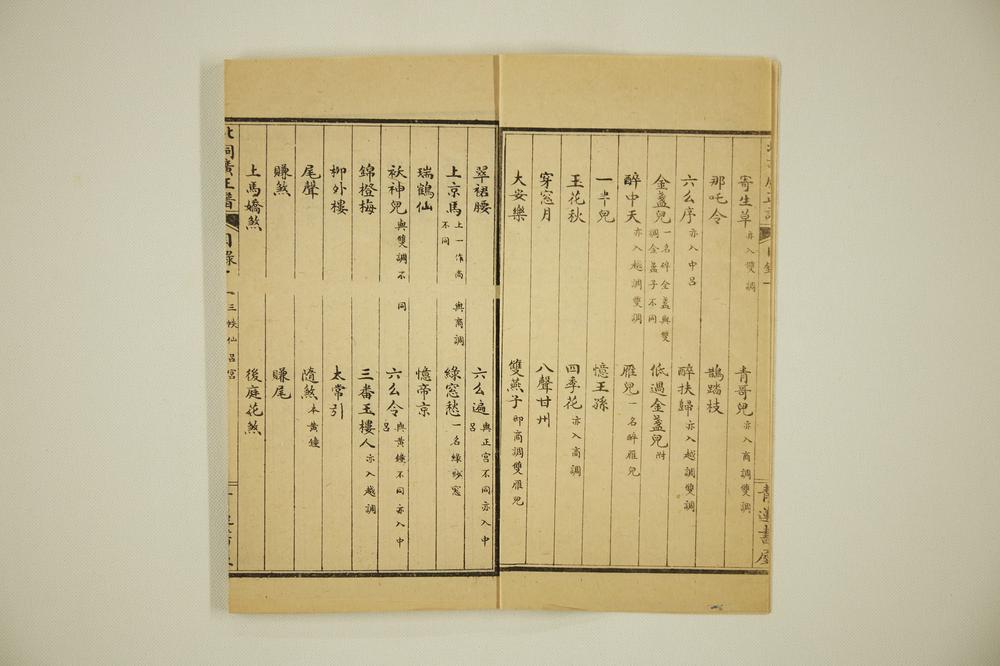 寄生草 亦入雙調 青哥兒 亦入商調雙調
那吒令 鵲踏枝
六么序 亦入中呂 醉扶歸 亦入越調雙調
金盞兒 一名碎金盞與雙調金盞子不同 低過金盞兒 附
醉中天 亦入越調雙調 雁兒 一名醉雁兒
一半兒 憶王孫
玉花秋 四季花 亦入商調
穿窓月 八聲甘州
大安樂 雙燕子 即商調雙雁兒
青蓮書屋
翠裙腰 六么遍 與正宮不同亦入中呂
上京馬 上一作尚與商調不同 綠窓愁 一名綠紗窓
瑞鶴仙 憶帝京
袄神兒 與雙調不同 六么令 與黃鐘不同亦入中呂
錦橙梅 三番玉樓人 亦入越調
柳外樓 太常引
尾聲 隨煞 本黃鐘
賺煞 賺尾
上馬嬌煞 後庭花煞
北詞廣正譜 目錄 一三帙仙呂宮